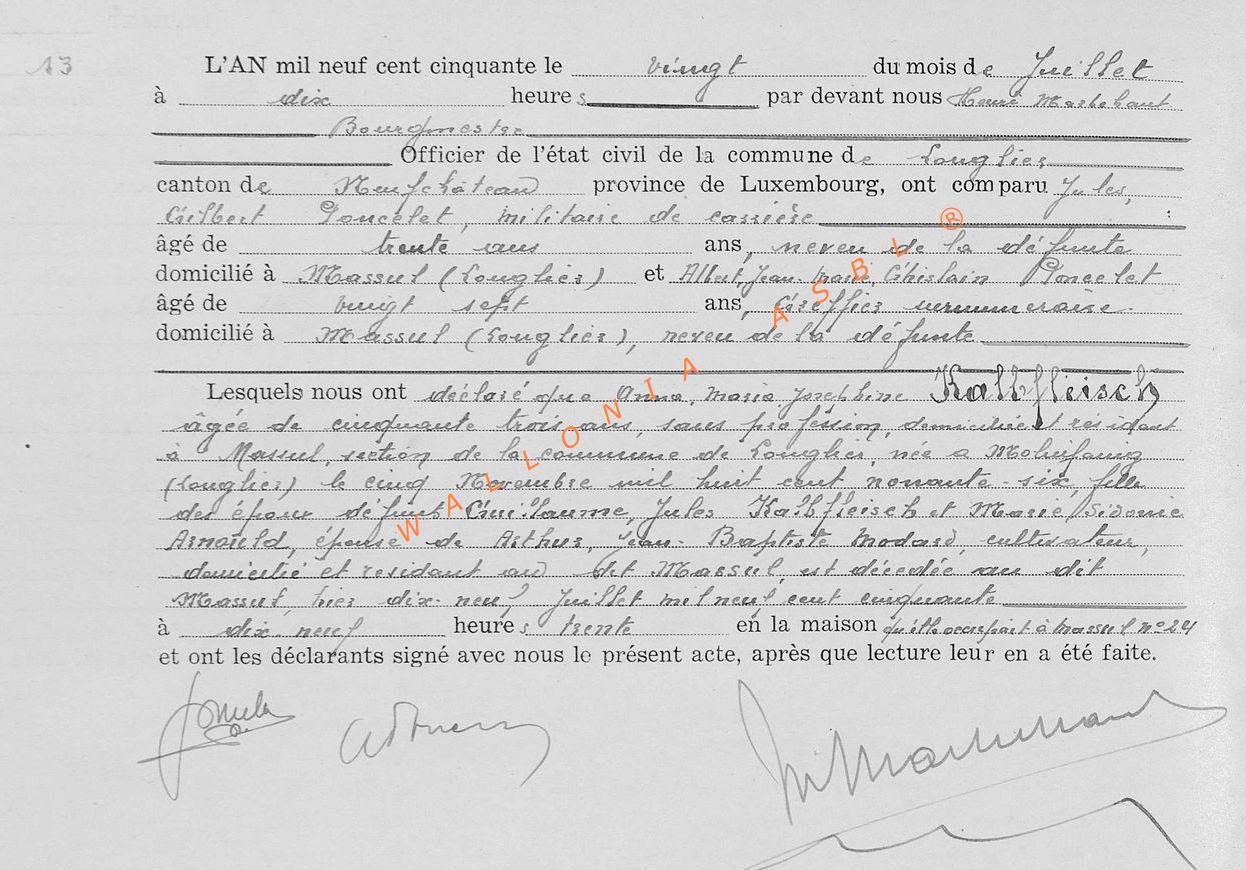 13
L'AN mil neuf cent cinquante le vingt du mois de Juillet
à dix heures par devant nous Henri Marchant
Bourgmestre
Officier de l'état civil de la commune de Longlier
canton de Neufchâteau province de Luxembourg, ont comparu Jules,
Gilbert Poncelet, militaire de carrière
âgé de trente ans ans, neveu de la défunte
domicilié à Massul (Longlier) et Albert, Jean, Marie, Ghislain Poncelet
âgé de vingt sept ans, Greffier surnuméraire
domicilié à Massul (Longlier), neveu de la défunte
Lesquels nous ont déclaré que Anna, Maria Josephine Kalbfleisch
âgée de cinquante trois ans, sans profession, domiciliée et résidant
à Massul, section de la commune de Longlier, née a Molinfaing
(Longlier) le cinq Novembre mil huit cent nonante-six, fille
des époux défunts Guillaume, Jules Kalbfleisch et Marie Sidonie
Arnould, épouse de Arthur, Jean-Baptiste Modard, cultivateur,
domicilié et residant au dit Massul, est décédée au dit
Massul, hier dix-neuf Juillet mil neuf cent cinquante
à dix neuf heures trente en la maison qu'elle occupait à Massul n° 24
et ont les déclarants signé avec nous le présent acte, après que lecture leur en a été faite.
WALLONIA ASBL ®